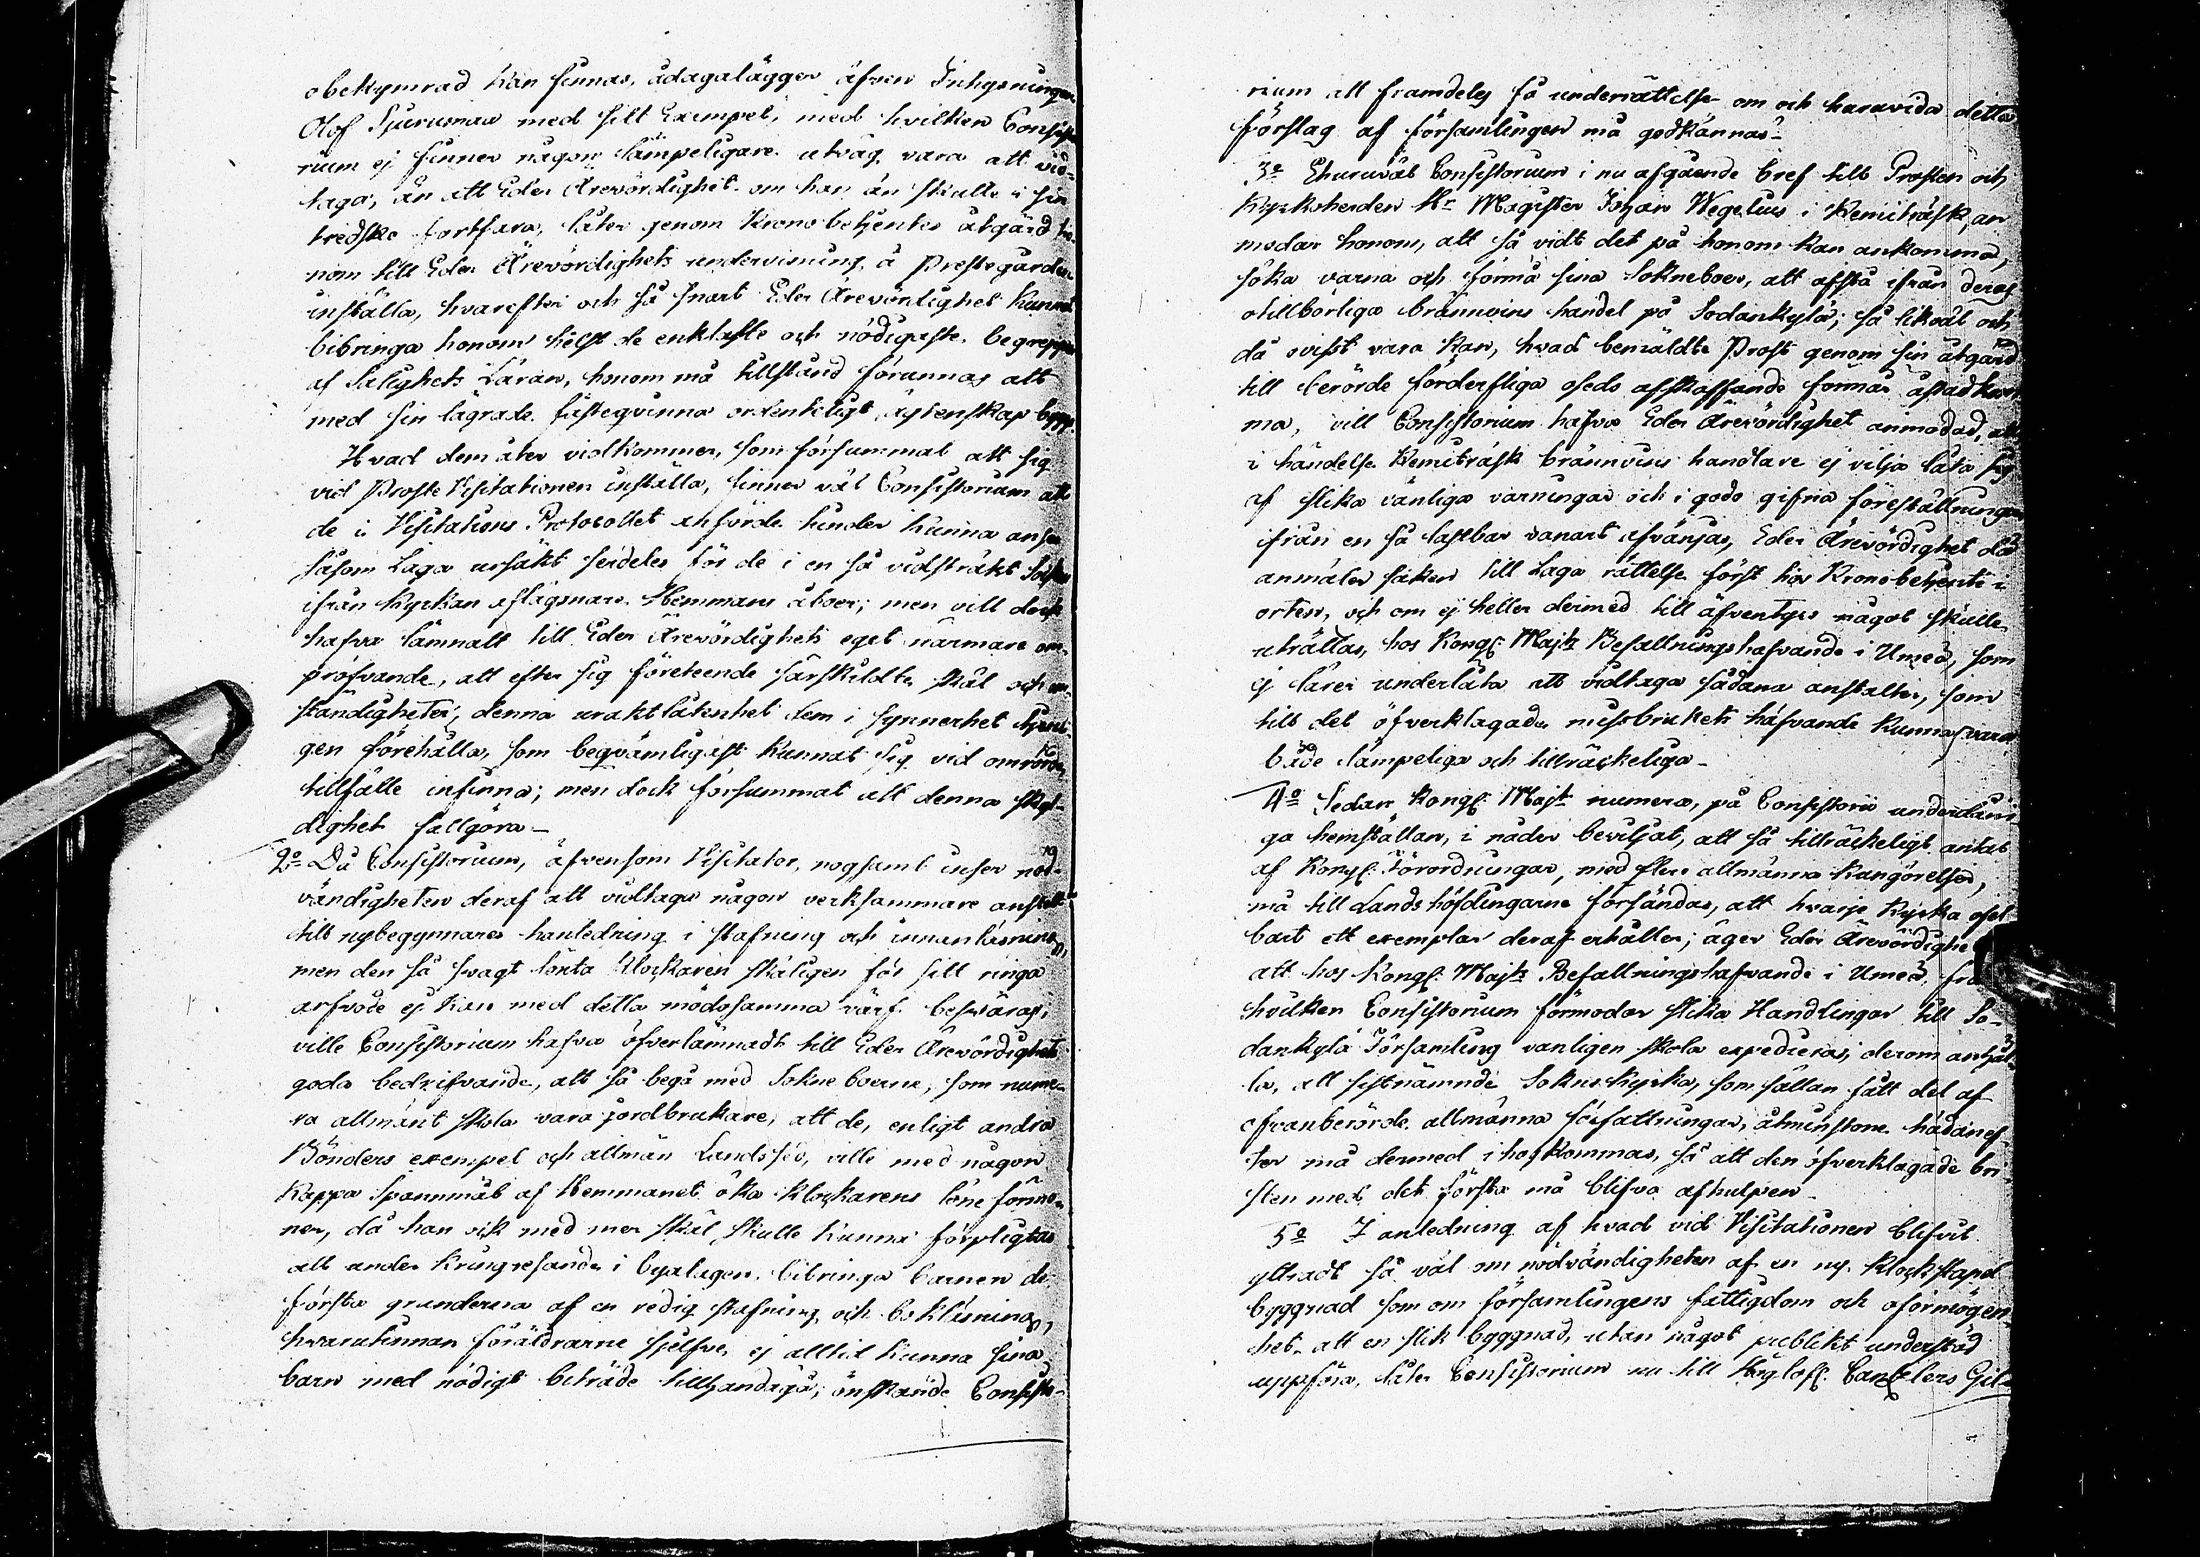 obekymrad kan finnas, ådagalägger äfven Inhysningen
Olof med sitt Exempel, med hvilken Consisto
rium ej finner någon lämpeligare utväg vara att vid-
taga, än att Eder Ärevördighet om han än skulle i sin
tredsko fortfara, låter genom Kronobetjentes åtgärd ho-
nom till Eder Ärevördighets undervisning å Prestegården
inställa, hvarefter och så snart Eder Ärevördighet kunnat
bibringa honom helst de enklaste och nödigaste begrepp
af Salighets Läran, honom må tillstånd förunnas att
med sin lägrade fästeqvinna ordenteligt ägtenskap bygga.
Hvad dem åter vidkommer, som försummat att sig
vid Prosts Visitationen inställa, finner väl Consistorium att
de i Visitations Protocollet anförde hinder kunna anses
såsom Laga ursäkt serdeles för de i en så vidsträkt Sokn
ifrån Kyrkan aflägsnare Hemmans åboer; men vill dock
hafva lämnatt till Eder Ärevördighets eget närmare om-
pröfvande, att efter sig företeende särskildte skäl och om-
ständigheter, denna uraktlåtenhet dem i synnerhet
gen förehålla, som beqvämligast kunnat sig vid omrörde
tillfälle infinna; men dock försummat att denna skyl-
dighet fullgöra_
2o Då Consistorium, äfvensom Visitator, nogsamt inser nöd-
vändigheten deraf att vidtaga någon verksammare anstalt
till nybegynnares handledning i stafning och innanläsning,
men den så svagt lönta Klockaren skäligen för sitt ringa
arfvode ej kan med detta mödosamma värf besväras;
ville Consistorium hafva öfverlämnadt till Eder Ärevördighets
goda bedrifvande, att så begå med Sokneboerne, som nume-
ra allmänt skola vara jordbrukare, att de, enligt andra
Bönders exempel och allmän Landssed, ville med någon
Kappa Spannmål af Hemmanet öka klockarens löneförmå-
ner, då han ock med mer skäl skulle kunna förpligtas
att under kringresande i byalagen bibringa barnen de
första grunderna af en redig stafning och bokläsning,
hvarutinnan föräldrarne sjelfve ej alltid kunna sina
barn med nödigt biträde tillhandagå; önskande Consisto-
rium att framdeles få underrättelse om och huruvida detta
förslag af församlingen må godkännas?
3o Ehuruväl Consistorium i nu afgående bref till Prosten och
Kyrkoherden Hr Magister Johan Wegelius i Kemiträsk, an
modar honom, att så vidt det på honom kan ankomma,
söka varna och förmå sina Sokneboer, att afstå ifrån deras
otillbörliga brännvins handel på Sodankylä; så likväl och
då ovisst vara kan, hvad bemäldte Prost genom sin åtgärd
till berörde förderfliga oseds afskaffande förmår åstadkom-
ma, vill Consistorium hafva Eder Ärevördighet anmodad, att
i händelse Kemiträsk brännvins handlare ej vilja låta sig
af slika vänliga varningar och i godo gifna föreställningar
ifrån en så lastbar vanart afvänjas, Eder Ärevördighet då
anmäler saken till Laga rättelse först hos Kronobetjente i
orten, och om ej heller dermed till äfventyrs något skulle
uträttas, hos Kongl. Majts Befallningshafvande i Umeå, som
ej lärer underlåta att vidtaga sådana anstalter, som
till det öfverklagade missbrukets häfvande kunna vara
både lämpeliga och tillräckeliga_
4o Sedan Kongl. Majt numera, på Consistorii underdåni
ga hemställan, i nåder beviljat, att så tillräckeligt antal
af Kongl. Förordningar, med flere allmänna kungörelser,
må till Landshöfdingarne försändas, att hvarje Kyrka ofel-
bart ett exemplar deraf erhåller; äger Eder Ärevördighet
att hos Kongl. Majts Befallningshafvande i Umeå, från
hvilken Consistorium förmodar slika Handlingar till So-
dankylä Församling vanligen skola expedieras, derom anhål-
la, att sistnämnde Sokns Kyrka, som sällan fått del af
ofvanberörde allmänna författningar, åtminstone hädanef-
ter må dermed ihogkommas, så att den öfverklagade bri-
sten med det första må blifva afhulpen_
5o I anledning af hvad vid Visitationen blifvit
yttradt så väl om nödvändigheten af en ny klockstapel
byggnad som om församlingens fattigdom och oförmögen-
het att en slik byggnad, utan något publikt understöd
uppföra, låter Consistorium nu till Höglofl. Canzlers Gil-